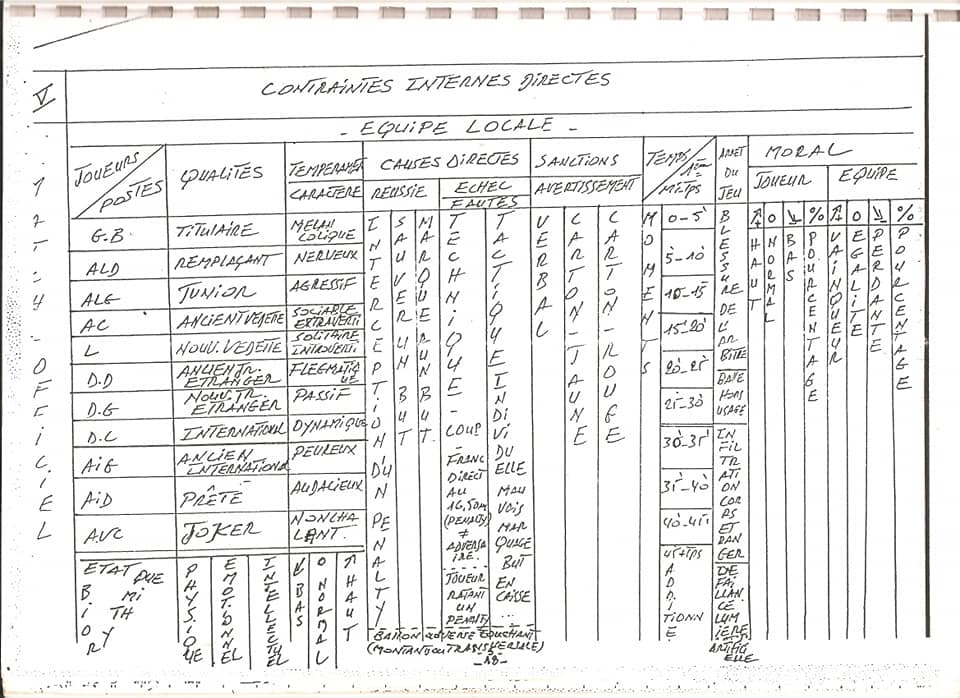 V
CONTRAINTES INTERNES DIRECTES
- EQUIPE LOCALE -
JOUEURS / POSTES
QUALITÉS
TEMPERAMENT
CARACTÈRE
CAUSES DIRECTES
REUSSIE
ECHEC
FAUTES
SANCTIONS
AVERTISSEMENT
TEMPS / 1ère MI-TPS
ARRET DU JEU
MORAL
JOUEUR
EQUIPE
G.B
TITULAIRE
MELANCOLIQUE
0-5
ALD
REMPLAÇANT
NERVEUX
5-10
ALG
JUNIOR
AGRESSIF
10-15
AC
ANCIEN VEDETE
SOCIABLE EXTRAVERTI
15-20
L
NOUV. VEDETTE
SOLITAIRE INTROVERTI
20-25
D.D
ANCIEN JR. ETRANGER
FLEGMATIQUE
D.G
NOUV. JR. ETRANGER
PASSIF
25-30
D.C
INTERNATIONAL
DYNAMIQUE
30-35
AIG
ANCIEN INTERNATIONAL
PEUREUX
AID
PRÊTÉ
AUDACIEUX
35-40
AVC
JOKER
NONCHALANT.
40-45
45+TPS ADDITIONNE
ETAT QUE
BIORYTHMI
PHYSIQUE
EMOTIONNEL
INTELLECTUEL
↓ BAS
O NORMAL
↑ HAUT
INTERCEPTION D'UN PENALTY
SAUVE UN BUT
MARQUE UN BUT.
TECHNIQUE - COUP FRANC DIRECT AU 16,50m (PENALTY) ≠ ADVERSAIRE.
JOUEUR RATANT UN PENALTY
TACTIQUE INDIVIDUELLE MAUVOIS MARQUAGE BUT ENCAISSE
BALLON ADVERSE TOUCHANT
(MONTANT OU TRANSVERSALE)
VERBAL
CARTON-JAUNE
CARTON-ROUGE
MOMENTS
BLESSURE DE L'ARBITRE
BALLE HORS USAGE
INFILTRATION CORPS ETRANGER
DEFAILLANCE LUMIÈRES ARTIFICIELLE
↑ HAUT
O NORMAL
↓ BAS
% POURCENTAGE
↑ VAINQUEUR
O EGALITE
↓ PERDANTE
% POURCENTAGE
-18-